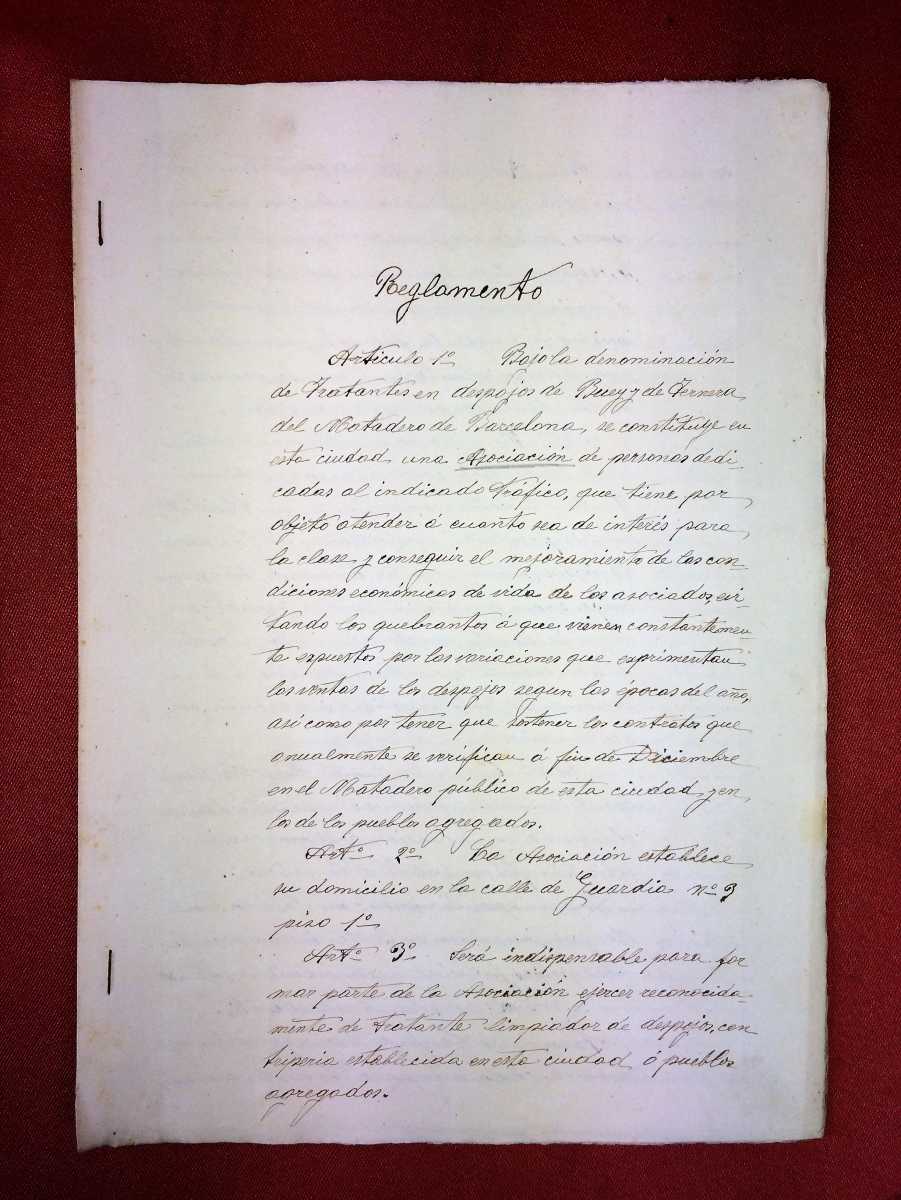 Reglamento
Artículo 1º Bajo la denominación
de Tratantes en despojos de Buey y de Ternera
del Matadero de Barcelona, se constituye en
esta ciudad una Asociación de personas dedi
cadas al indicado tráfico, que tiene por
objeto atender á cuanto sea de interés para
la clase y conseguir el mejoramiento de las con-
diciones económicas de vida de los asociados, evi-
tando los quebrantos á que vienen constantemen-
te expuestos por las variaciones que exprimentan
las ventas de los despojos segun las épocas del año,
así como por tener que sostener los contratos que
anualmente se verifican á fin de Diciembre
en el Matadero público de esta ciudad y en
los de los pueblos agregados.
Artº 2º La Asociación establece
su domicilio en la calle de Guardia nº 3
piso 1º
Artº 3º Será indispensable para for
mar parte de la Asociación ejercer reconocida-
mente de tratante limpiador de despojos, con
triperia establecida en esta ciudad ó pueblos
agregados.